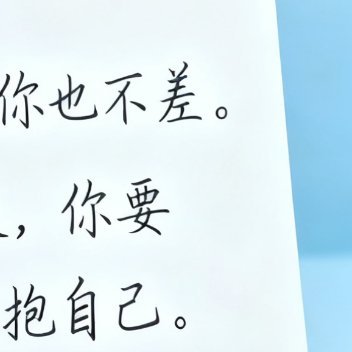 你也不差。
，你要
抱自己。